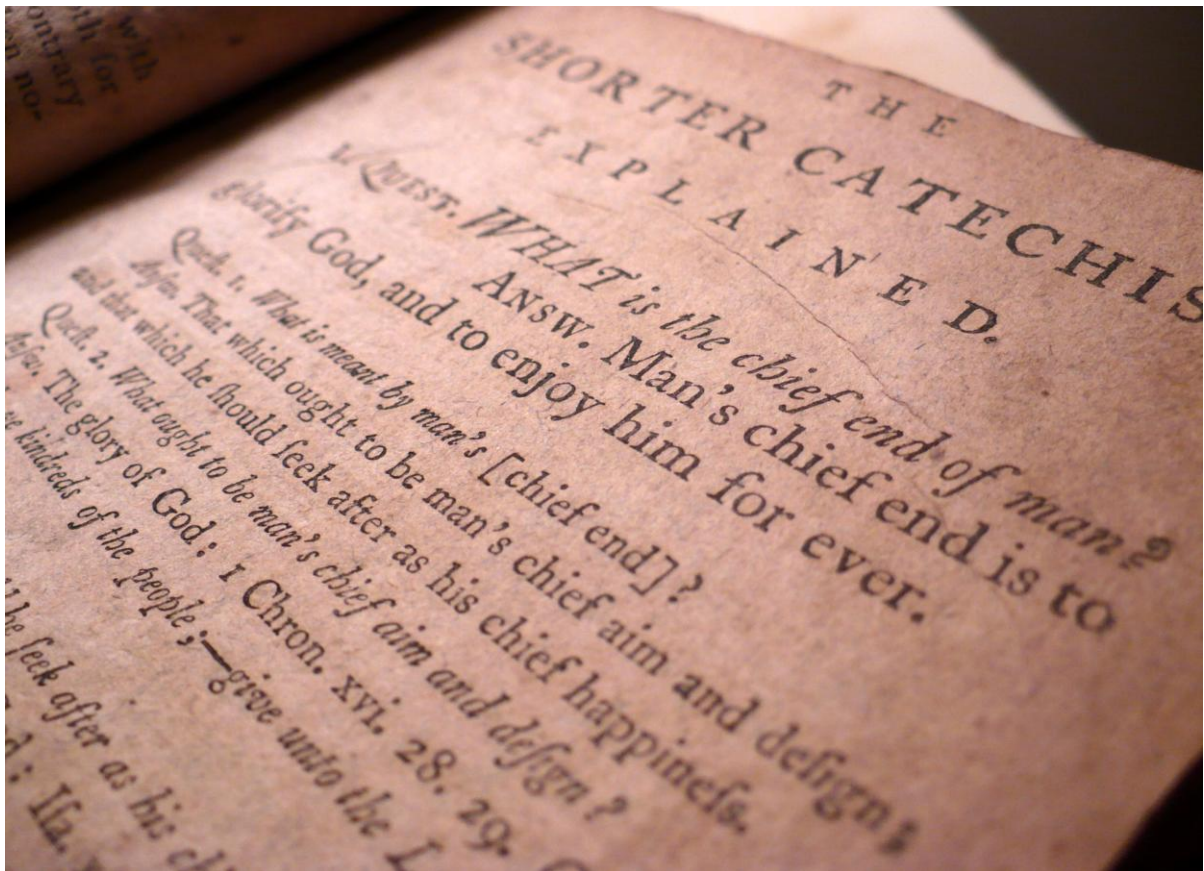 with
oth for
ontrary
no-
THE
SHORTER CATECHIS
EXPLAINED.
1. QUEST. WHAT is the chief end of man?
ANSW. Man's chief end is to
glorify God, and to enjoy him for ever.
Queſt. 1. What is meant by man's [chief end]?
Anſw. That which ought to be man's chief aim and deſign;
and that which he ſhould ſeek after as his chief happineſs.
Queſt. 2. What ought to be man's chief aim and deſign?
Anſw. The glory of God: 1 Chron. xvi. 28. 29.
kindreds of the people;—give unto the L
he ſeek after as his ch
: Iſa.